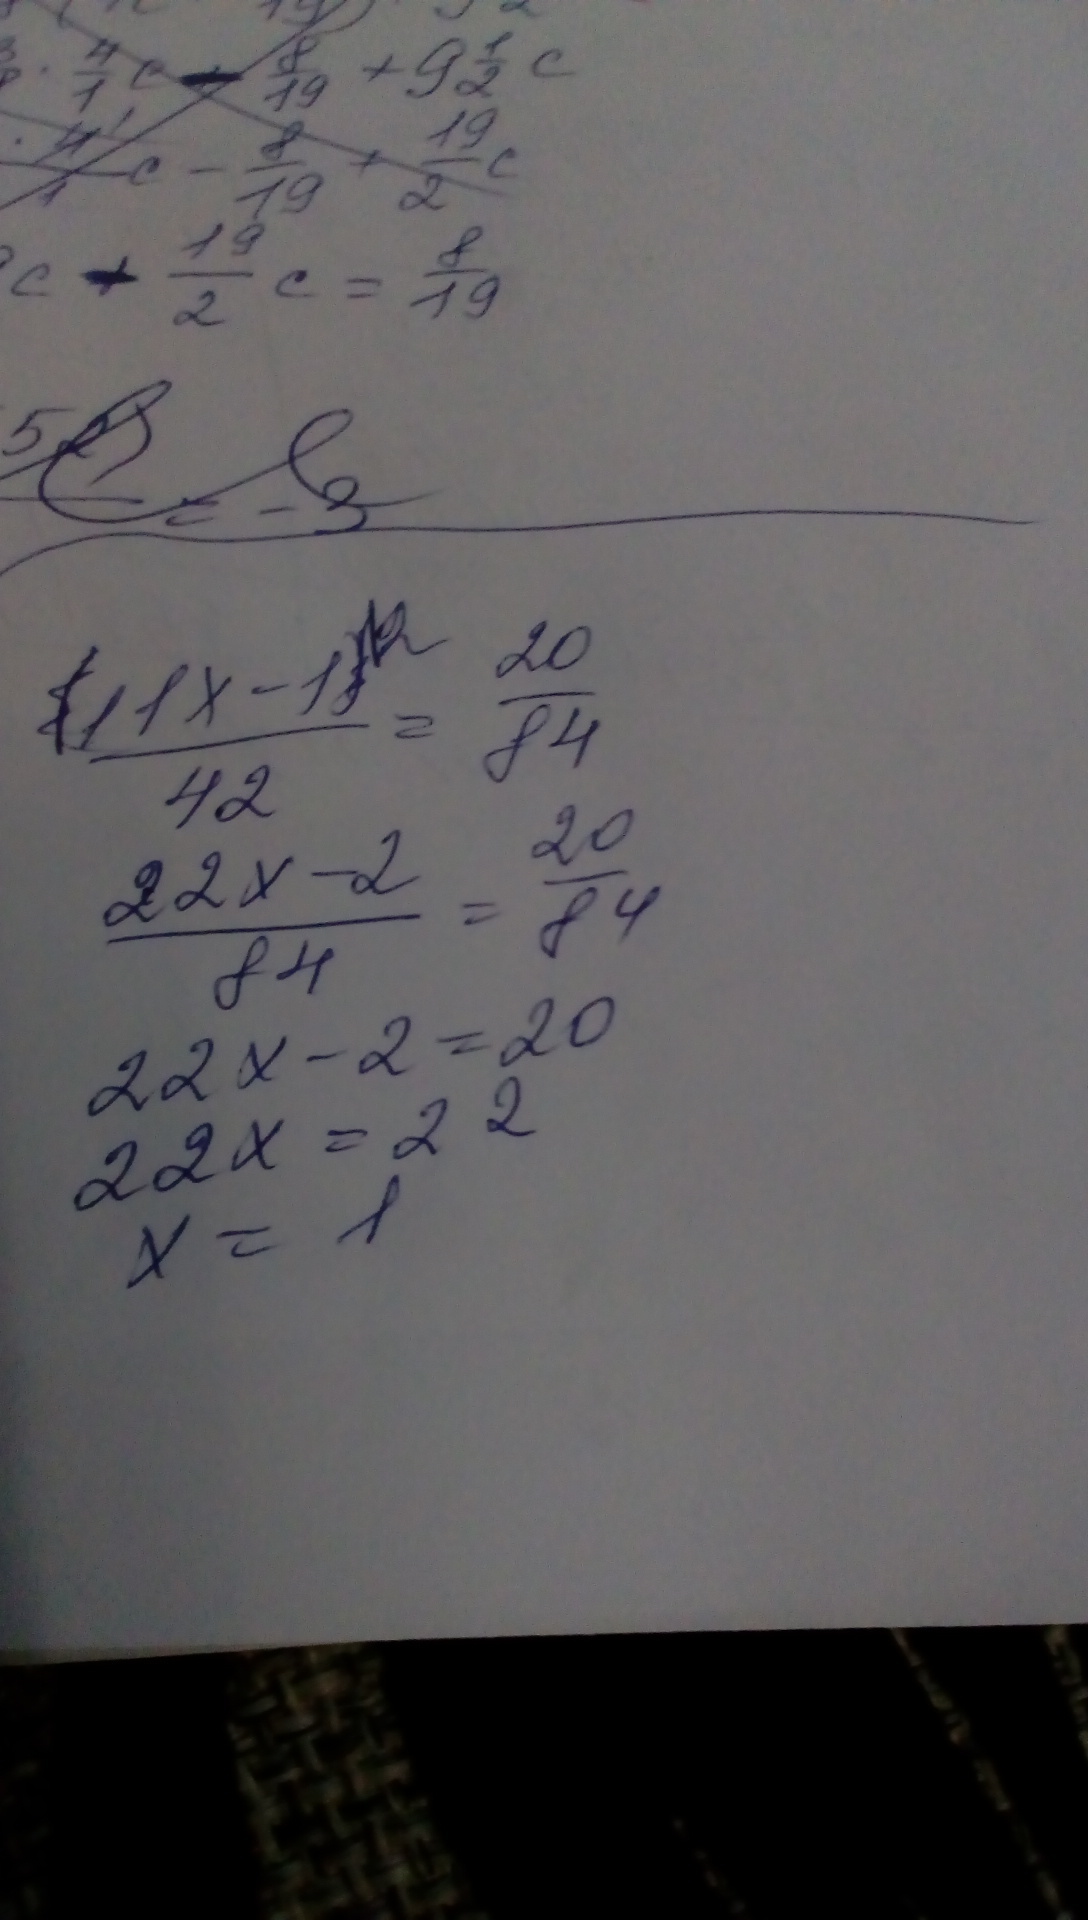 4/1 c - 8/19 + 9 1/2 c
· 4/1 c - 8/19 + 19/2 c
c + 19/2 c = 8/19
5
= -3
(11x-1)/42 = 20/84
(22x-2)/84 = 20/84
22x-2=20
22x=22
x=1